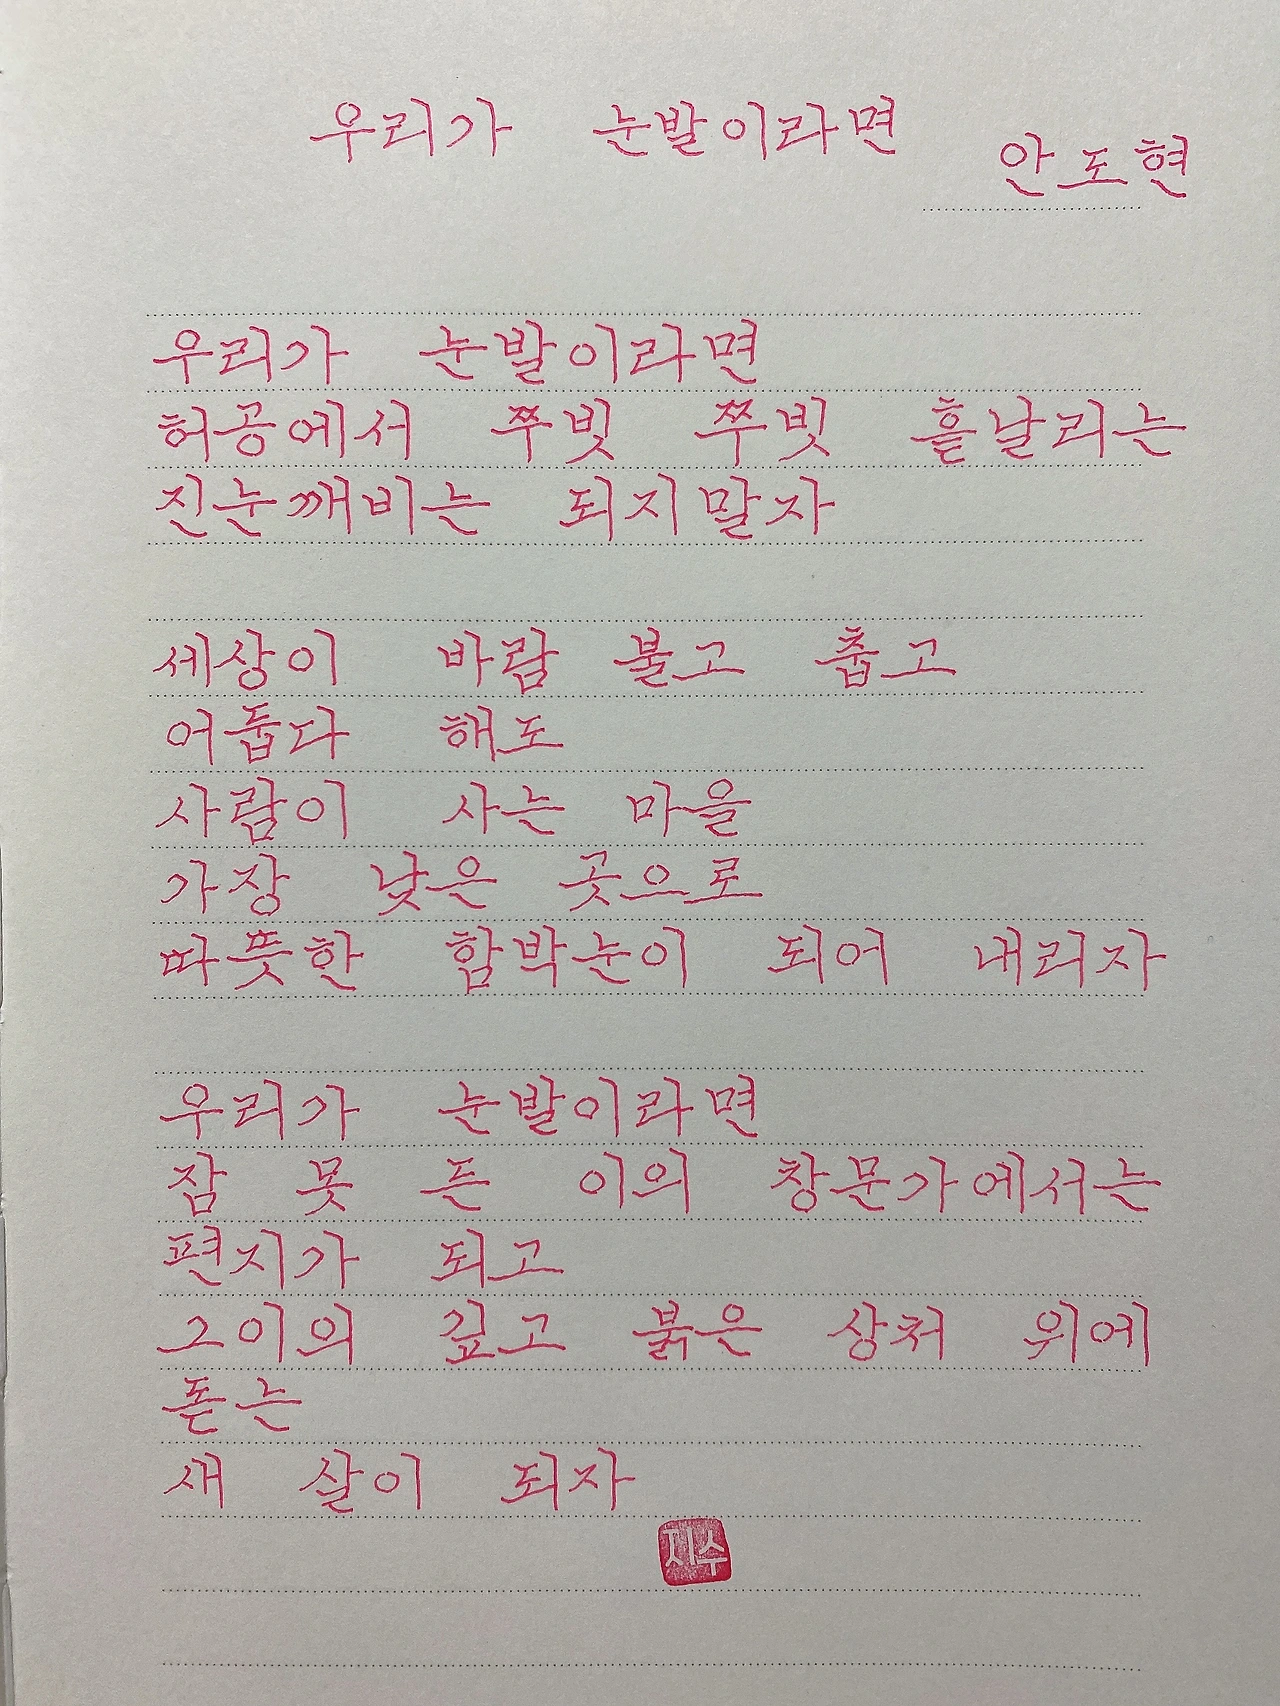 우리가 눈발이라면
안도현
우리가 눈발이라면
허공에서 쭈빗 쭈빗 흩날리는
진눈깨비는 되지말자
세상이 바람 불고 춥고
어둡다 해도
사람이 사는 마을
가장 낮은 곳으로
따뜻한 함박눈이 되어 내리자
우리가 눈발이라면
잠 못 든 이의 창문가에서는
편지가 되고
그이의 깊고 붉은 상처 위에
돋는
새 살이 되자
지수